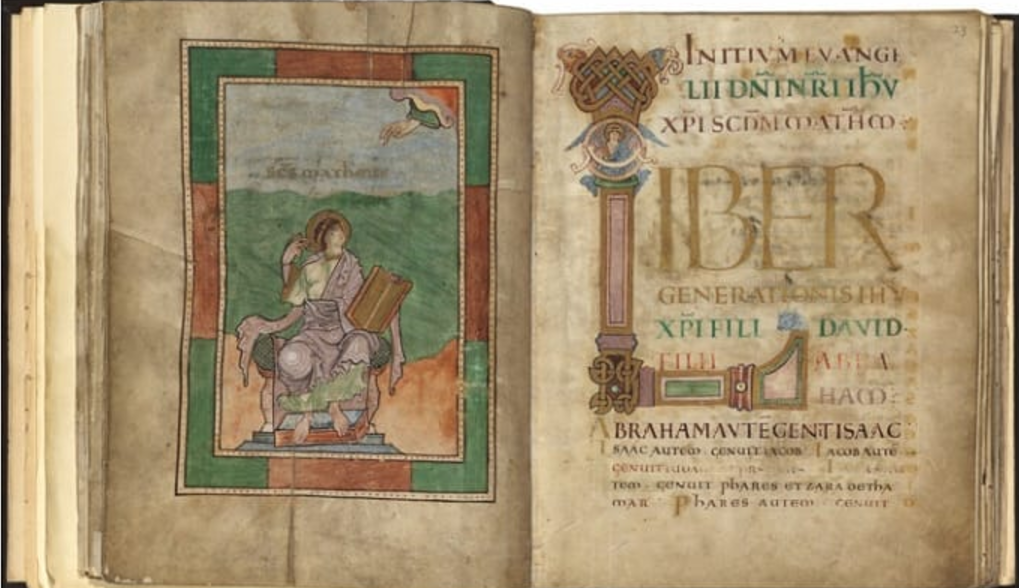 scs matheus
23
INITIVM EVANGE
LII DNI NRI IHV
XPI SCDM MATHM:
LIBER
GENERATIONIS IHV
XPI FILI DAVID
FILII ABRA
HAM:
ABRAHAM AVTE GENT ISAAC
ISAAC AUTEM GENUIT IACOB IACOB AUTE
GENUIT
TEM GENUIT PHARES ET ZARA DE THA
MAR PHARES AUTEM GENUIT